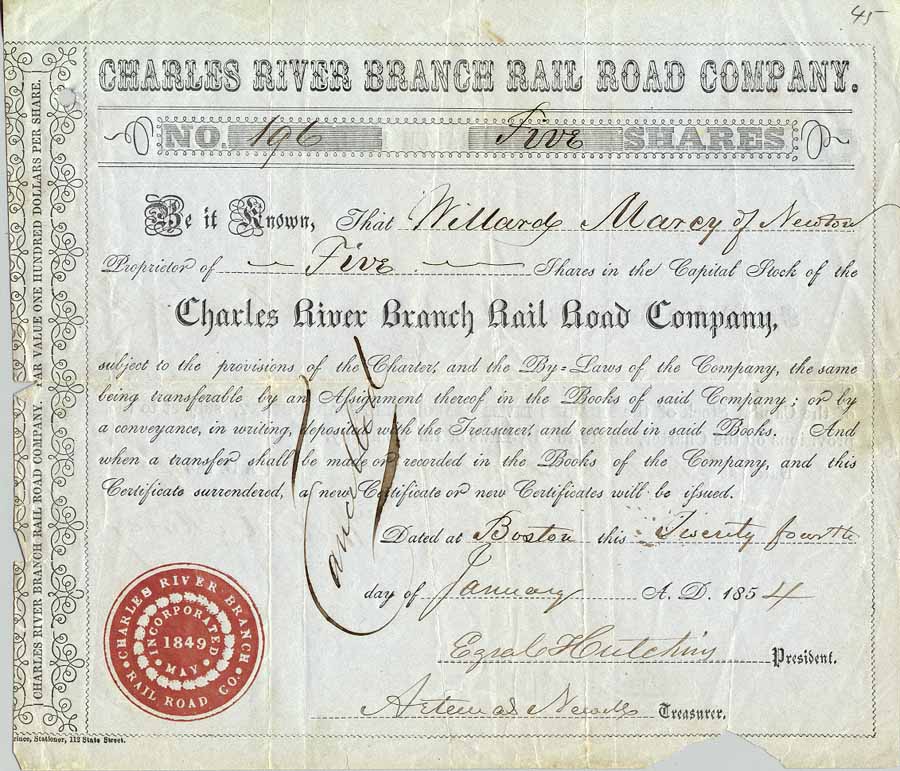 45
CHARLES RIVER BRANCH RAIL ROAD COMPANY.
NO. 196 Five SHARES
Be it Known, That Willard Marcy of Newton
Proprietor of Five Shares in the Capital Stock of the
Charles River Branch Rail Road Company,
subject to the provisions of the Charter, and the By=Laws of the Company, the same
being transferable by an Assignment thereof in the Books of said Company; or by
a conveyance, in writing, deposited with the Treasurer, and recorded in said Books. And
when a transfer shall be made or recorded in the Books of the Company, and this
Certificate surrendered, a new Certificate or new Certificates will be issued.
Cancelled
Dated at Boston this Twenty fourth
day of January A. D. 1854
Ezral Hutchins President.
Artemas Treasurer.
CHARLES RIVER BRANCH
RAIL ROAD CO.
INCORPORATED
1849
MAY
CHARLES RIVER BRANCH RAIL ROAD COMPANY. PAR VALUE ONE HUNDRED DOLLARS PER SHARE.
Stationer, 112 State Street.